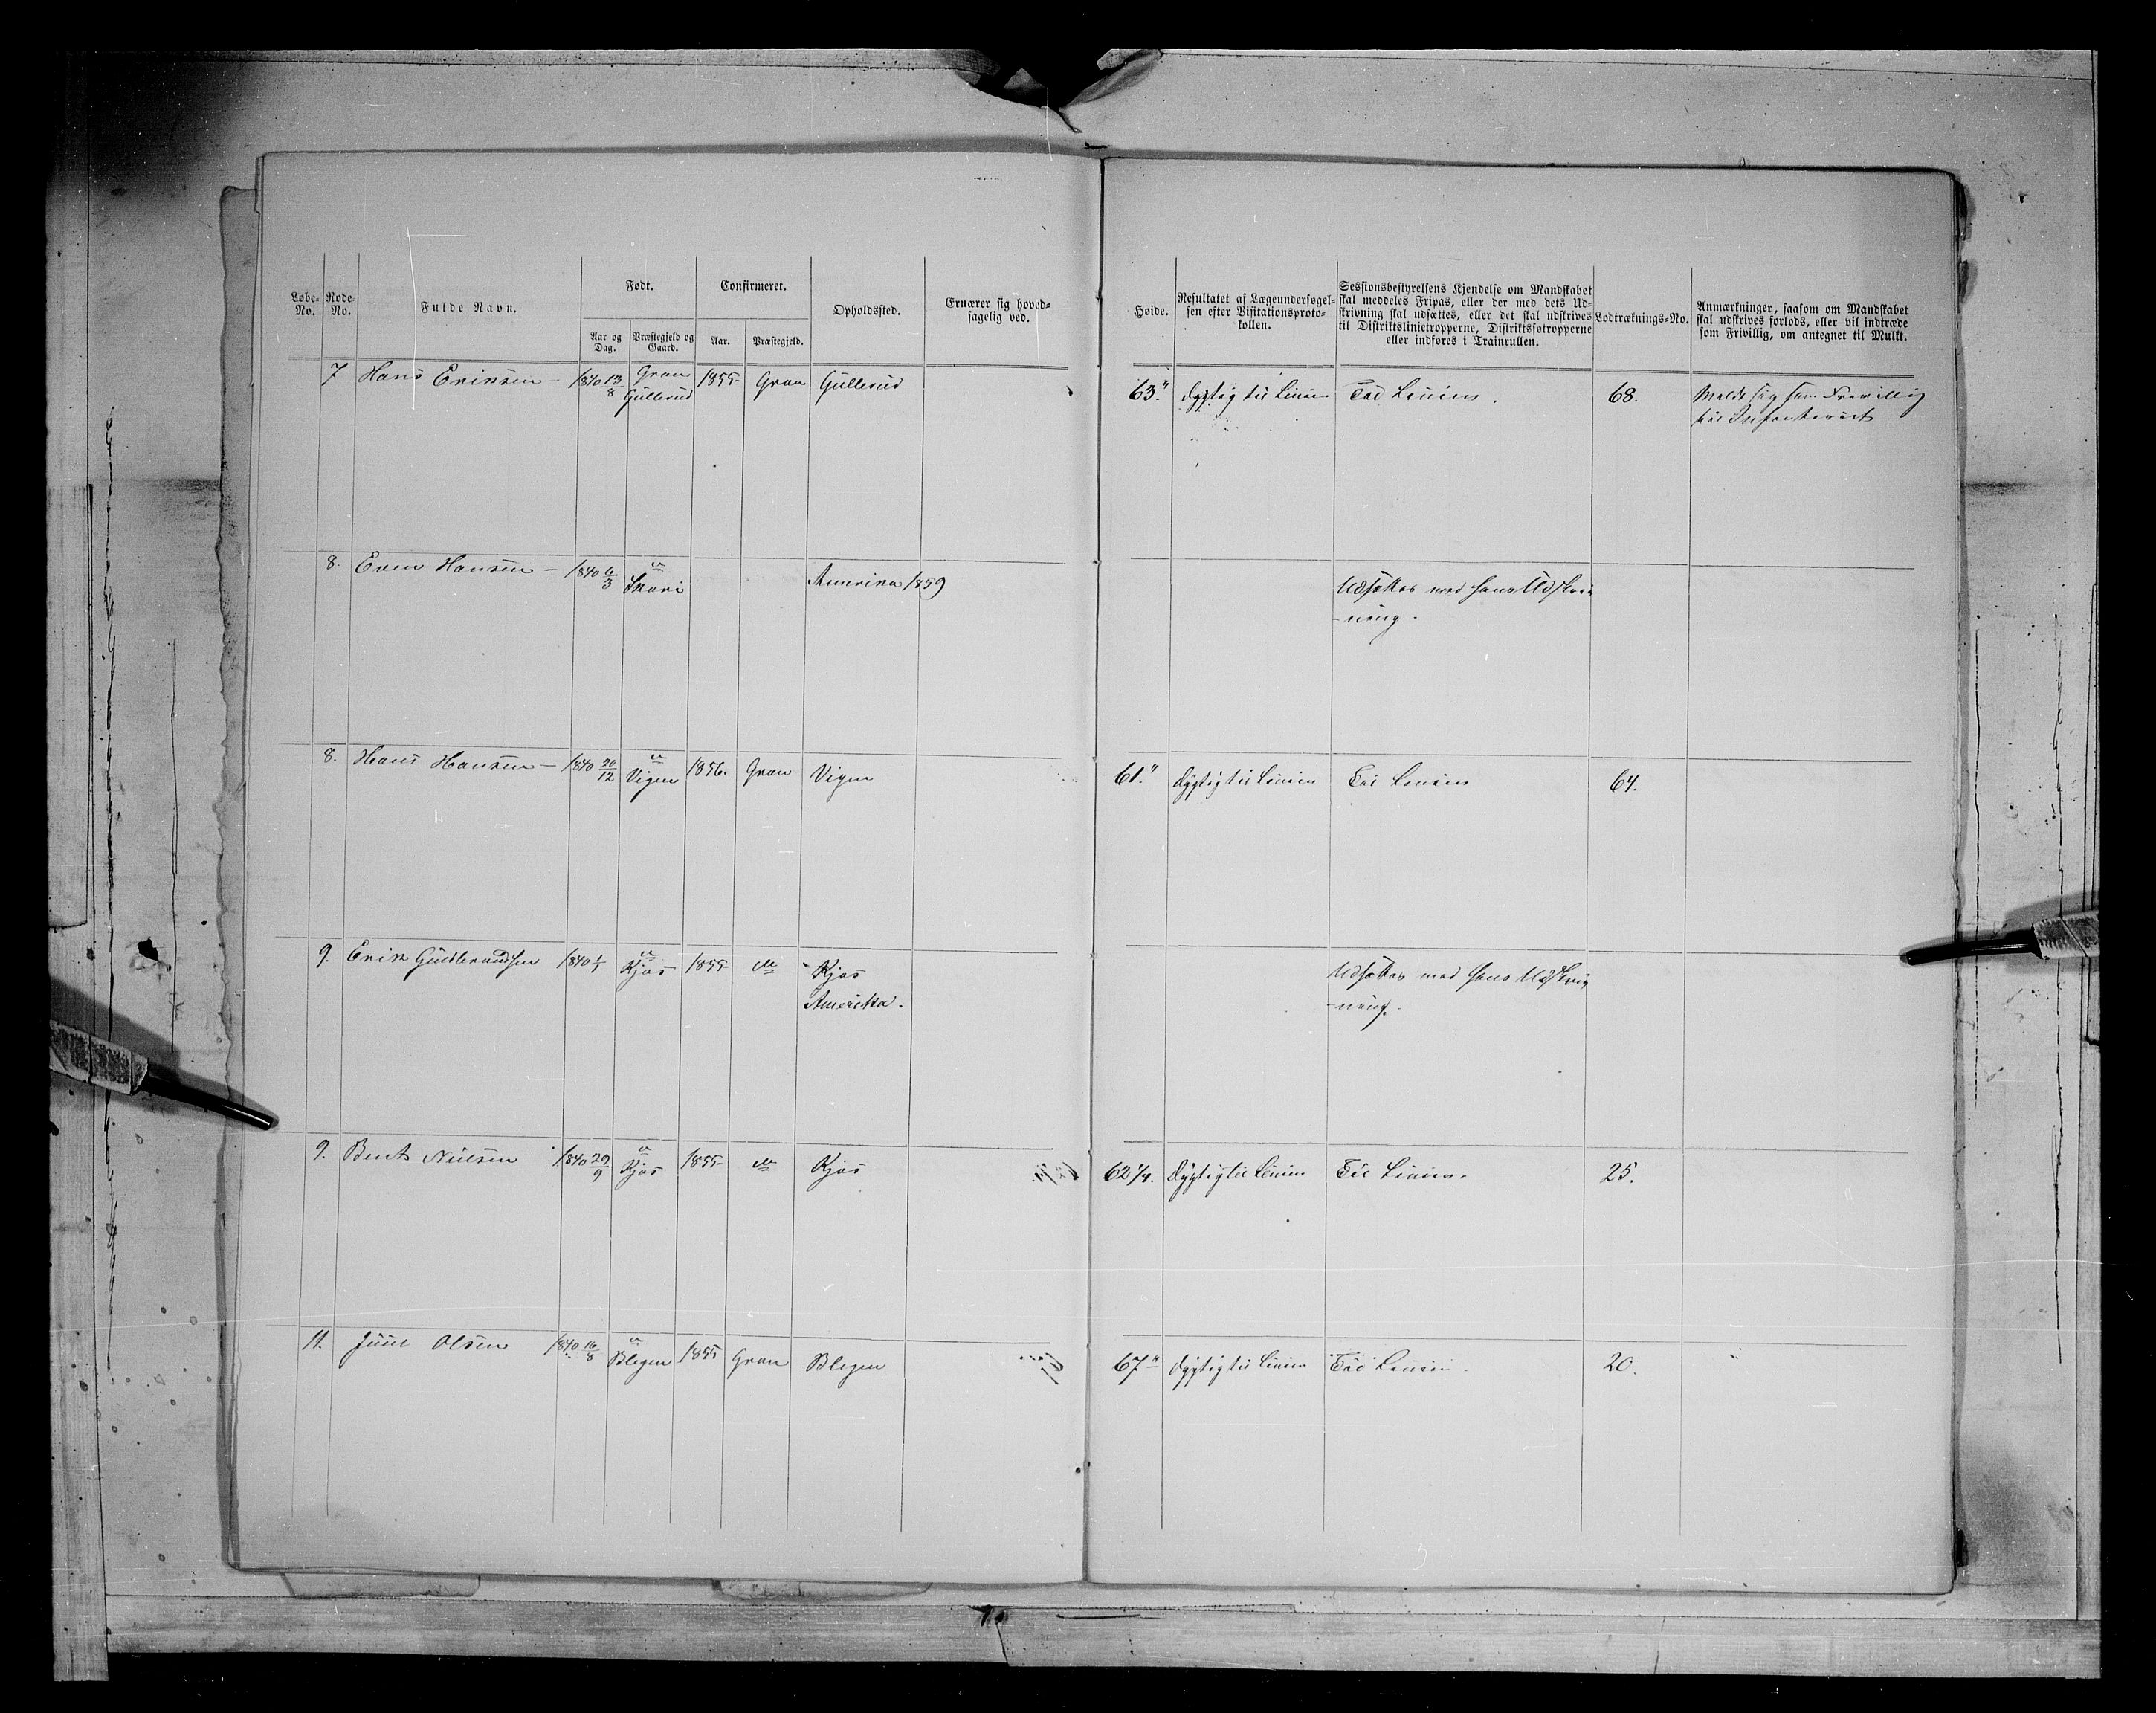 Løbe-No.
Rode-No.
Fulde Navn.
Født.
Aar og Dag.
Præstegjeld og Gaard.
Confirmeret.
Aar.
Præstegjeld.
Opholdssted.
Ernærer sig hoved-
sagelig ved.
Høide.
Resultatet af Lægeundersøgel-
sen efter Visitationsproto-
kollen.
Sessionsbestyrelsens Kjendelse om Mandskabet
skal meddeles Fripas, eller der med dets Ud-
skrivning skal udsættes, eller det skal udskrives
til Distriktslinietropperne, Distriktsfotropperne
eller indføres i Trainrullen.
Lodtræknings-No.
Anmærkninger, saasom om Mandskabet
skal udskrives forlods, eller vil indtræde
som Frivillig, om antegnet til Mulkt.
7 Hans Eriksen – 1840 13/8 Gran 1855 Gran Gullerud 63" dygtig til Linien Til Linien. 68. Meldt sig som Frivillig
Gullerud til Infanteriet
8. Even Hansen – 1840 6/3 Amerika 1859 Udsættes med hans Udskriv
-ning.
8. Hans Hansen – 1840 20/12 Vigen 1856. Gran Vigen 61" dygtig til Linien Til Linien 64.
9. Erik Guldbrandsen 1840 1/1 Kjos 1855 do Kjos Udsættes med hans Udskriv
Amerika. -ning.
9. Bent Nielsen 1840 29/9 Kjos 1855 do Kjos 62 1/4. dygtig til Linien Til Linien. 25.
11. Juul Olsen 1840 16/8 Blegen 1855 Gran Blegen 67" dygtig til Linien Til Linien 20.